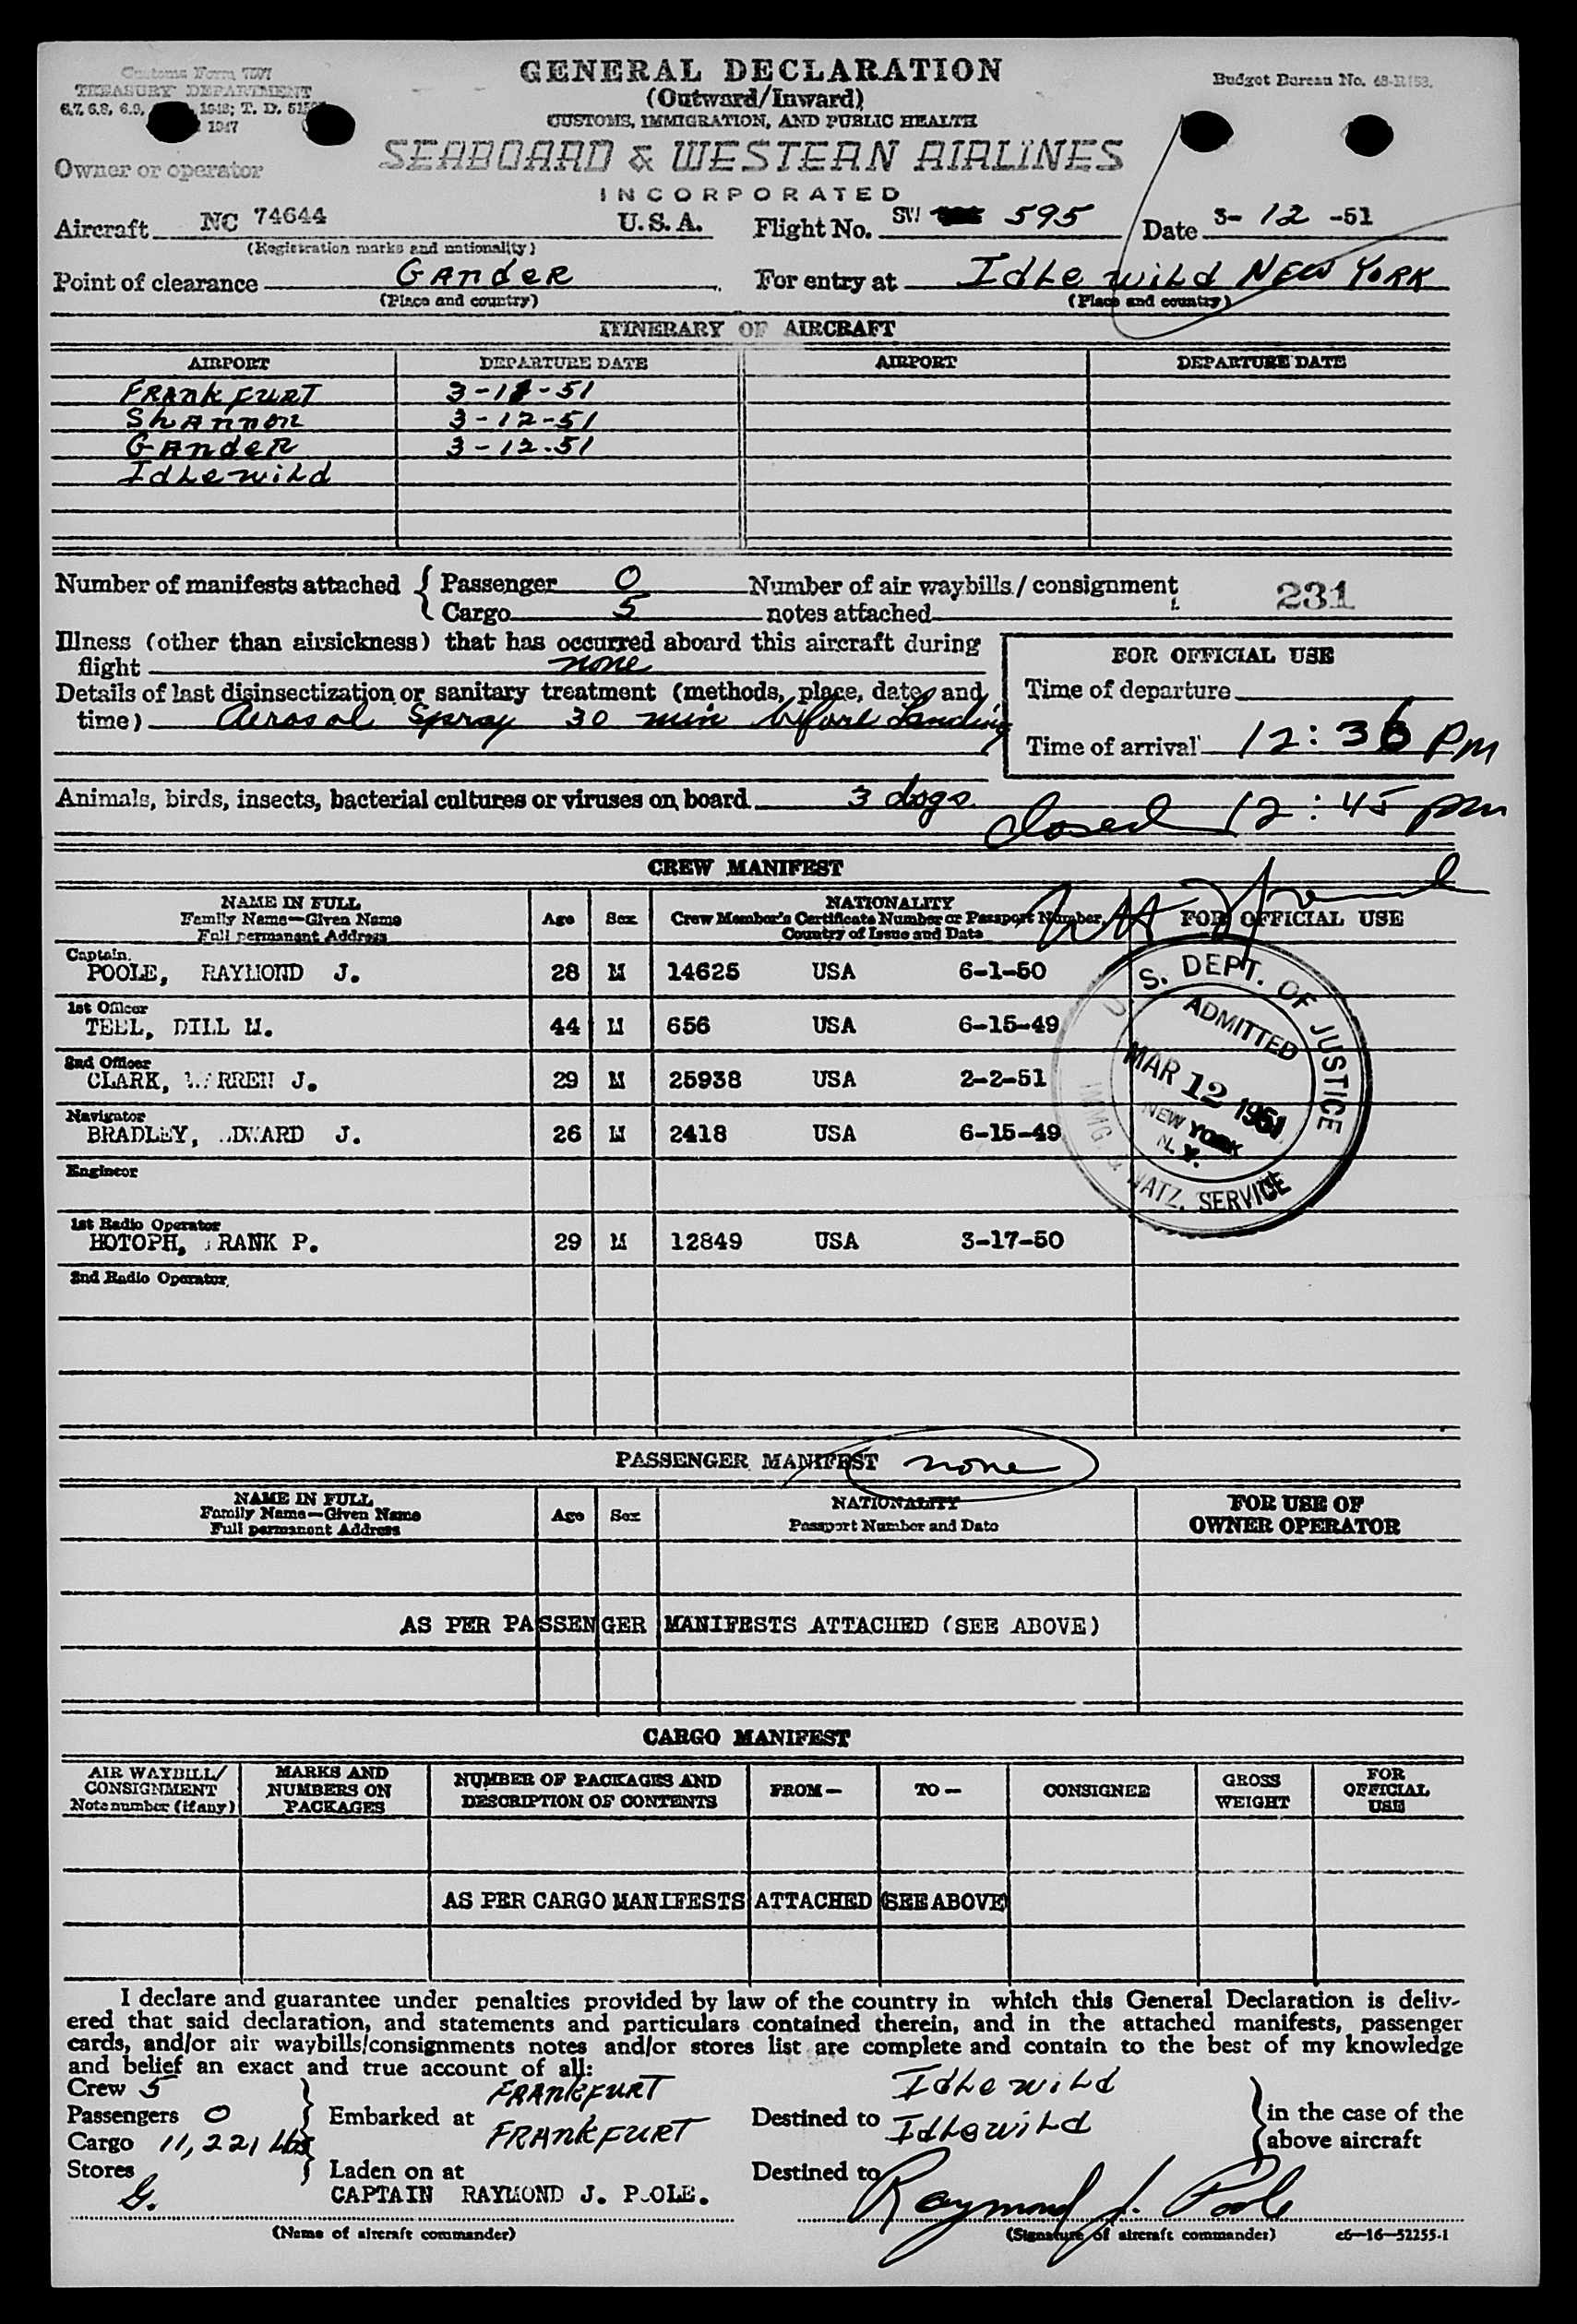 Customs Form 7507
GENERAL DECLARATION
Budget Bureau No. 48-R153.
TREASURY DEPARTMENT
(Outward/Inward)
6.7, 6.8, 6.9,
1948; T. D.
1947
CUSTOMS, IMMIGRATION, AND PUBLIC HEALTH
Owner or operator
SEABOARD & WESTERN AIRLINES
INCORPORATED
Aircraft NC 74644 U.S.A. Flight No. SW 595 Date 3- 12 -51
(Registration marks and nationality)
Point of clearance Gander For entry at Idlewild New York
(Place and country) (Place and country)
ITINERARY OF AIRCRAFT
AIRPORT DEPARTURE DATE AIRPORT DEPARTURE DATE
Frankfurt 3-11-51
Shannon 3-12-51
Gander 3-12-51
Idlewild
Number of manifests attached { Passenger 0 Number of air waybills / consignment 231
Cargo 5 notes attached
Illness (other than airsickness) that has occurred aboard this aircraft during
flight none
FOR OFFICIAL USE
Details of last disinsectization or sanitary treatment (methods, place, date, and
Time of departure
time) Aerosol Spray 30 min before Landing
Time of arrival 12:36 PM
Animals, birds, insects, bacterial cultures or viruses on board 3 dogs
Closed 12:45 pm
CREW MANIFEST
NAME IN FULL
Family Name—Given Name
Full permanent Address
Age Sex
NATIONALITY
Crew Member's Certificate Number or Passport Number
Country of Issue and Date
FOR OFFICIAL USE
Captain
POOLE, RAYMOND J. 28 M 14625 USA 6-1-50
1st Officer
TEEL, DILL M. 44 M 656 USA 6-15-49
2nd Officer
CLARK, WARREN J. 29 M 25938 USA 2-2-51
Navigator
BRADLEY, EDWARD J. 26 M 2418 USA 6-15-49
Engineer
1st Radio Operator
HOTOPH, FRANK P. 29 M 12849 USA 3-17-50
2nd Radio Operator
U. S. DEPT. OF JUSTICE
ADMITTED
MAR 12 1951
NEW YORK
N. Y.
IMMG. & NATZ. SERVICE
PASSENGER MANIFEST none
NAME IN FULL
Family Name—Given Name
Full permanent Address
Age Sex
NATIONALITY
Passport Number and Date
FOR USE OF
OWNER OPERATOR
AS PER PASSENGER MANIFESTS ATTACHED (SEE ABOVE)
CARGO MANIFEST
AIR WAYBILL/
CONSIGNMENT
Note number (if any)
MARKS AND
NUMBERS ON
PACKAGES
NUMBER OF PACKAGES AND
DESCRIPTION OF CONTENTS
FROM—
TO—
CONSIGNEE
GROSS
WEIGHT
FOR
OFFICIAL
USE
AS PER CARGO MANIFESTS ATTACHED (SEE ABOVE)
I declare and guarantee under penalties provided by law of the country in which this General Declaration is deliv-
ered that said declaration, and statements and particulars contained therein, and in the attached manifests, passenger
cards, and/or air waybills/consignments notes and/or stores list are complete and contain to the best of my knowledge
and belief an exact and true account of all:
Crew 5 Frankfurt Idlewild
Passengers 0 Embarked at Frankfurt Destined to Idlewild in the case of the
Cargo 11,221 Lbs above aircraft
Stores Laden on at Destined to
G. CAPTAIN RAYMOND J. POOLE. Raymond J. Poole
(Name of aircraft commander) (Signature of aircraft commander) c6—16—52255-1